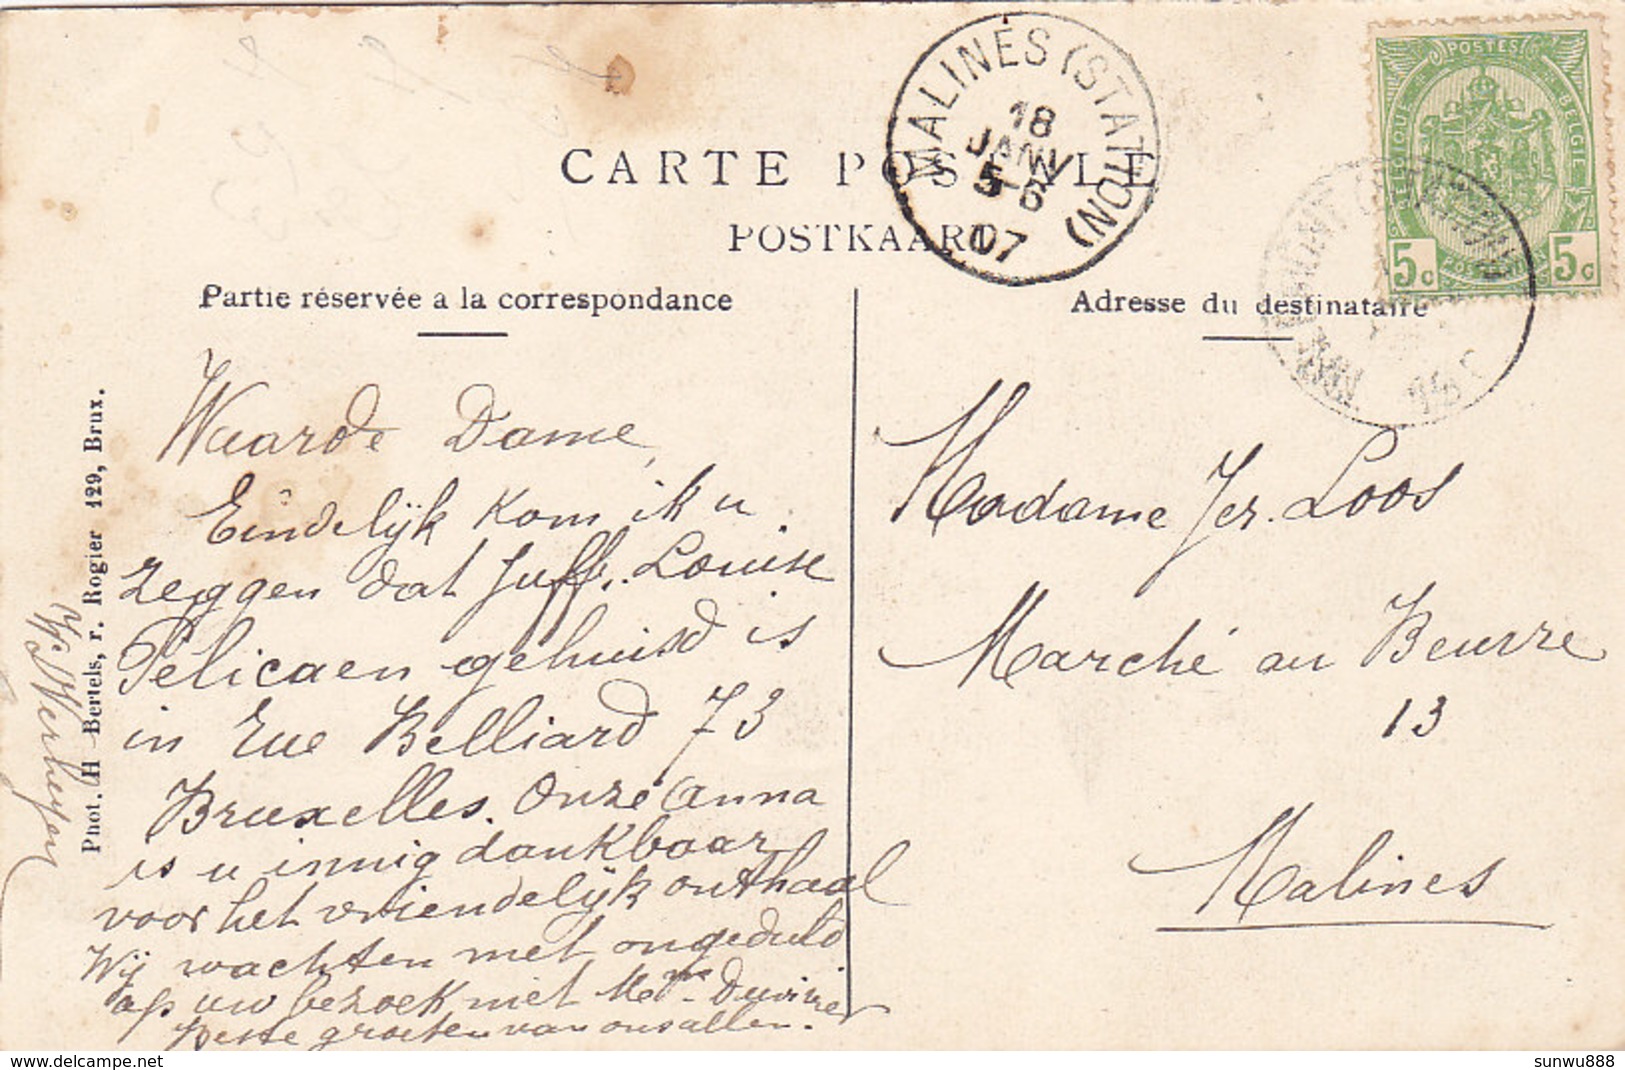 MALINES (STATION)
18
JANV
5-6
07
POSTES
BELGIQUE
BELGIE
5c
5c
CARTE POSTALE
POSTKAART
Partie réservée a la correspondance
Adresse du destinataire
Waarde Dame,
Eindelijk kom ik u
zeggen dat Juff. Louise
Pelicaen gehuisd is
in Rue Belliard 73
Bruxelles. Onze Anna
is u innig dankbaar
voor het vriendelijk onthaal
Wij wachten met ongeduld
op uw bezoek met Mme Duvivier
Beste groeten van ons allen.
We Werheyen
Phot. H Bertels, r. Rogier 129, Brux.
Madame Jer. Loos
Marché au Beurre
13
Malines
sunwu888